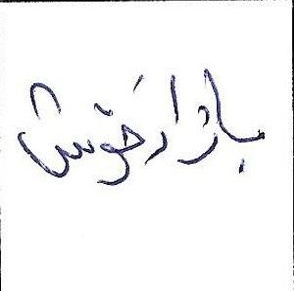 بازارخوش